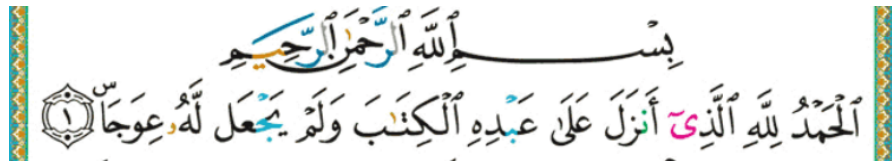 بِسْمِ ٱللَّهِ ٱلرَّحْمَٰنِ ٱلرَّحِيمِ
ٱلْحَمْدُ لِلَّهِ ٱلَّذِىٓ أَنزَلَ عَلَىٰ عَبْدِهِ ٱلْكِتَٰبَ وَلَمْ يَجْعَل لَّهُۥ عِوَجَاۜ ١